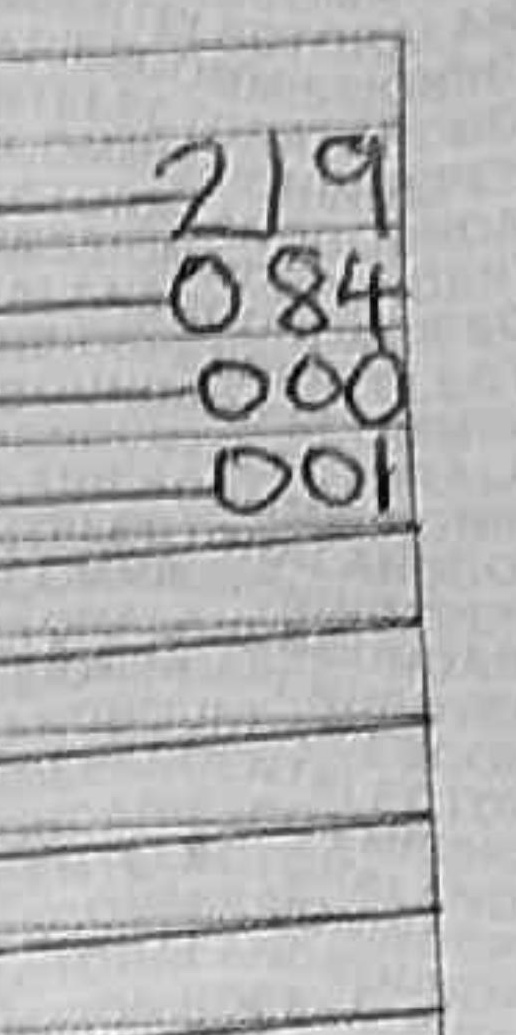 219
084
000
001